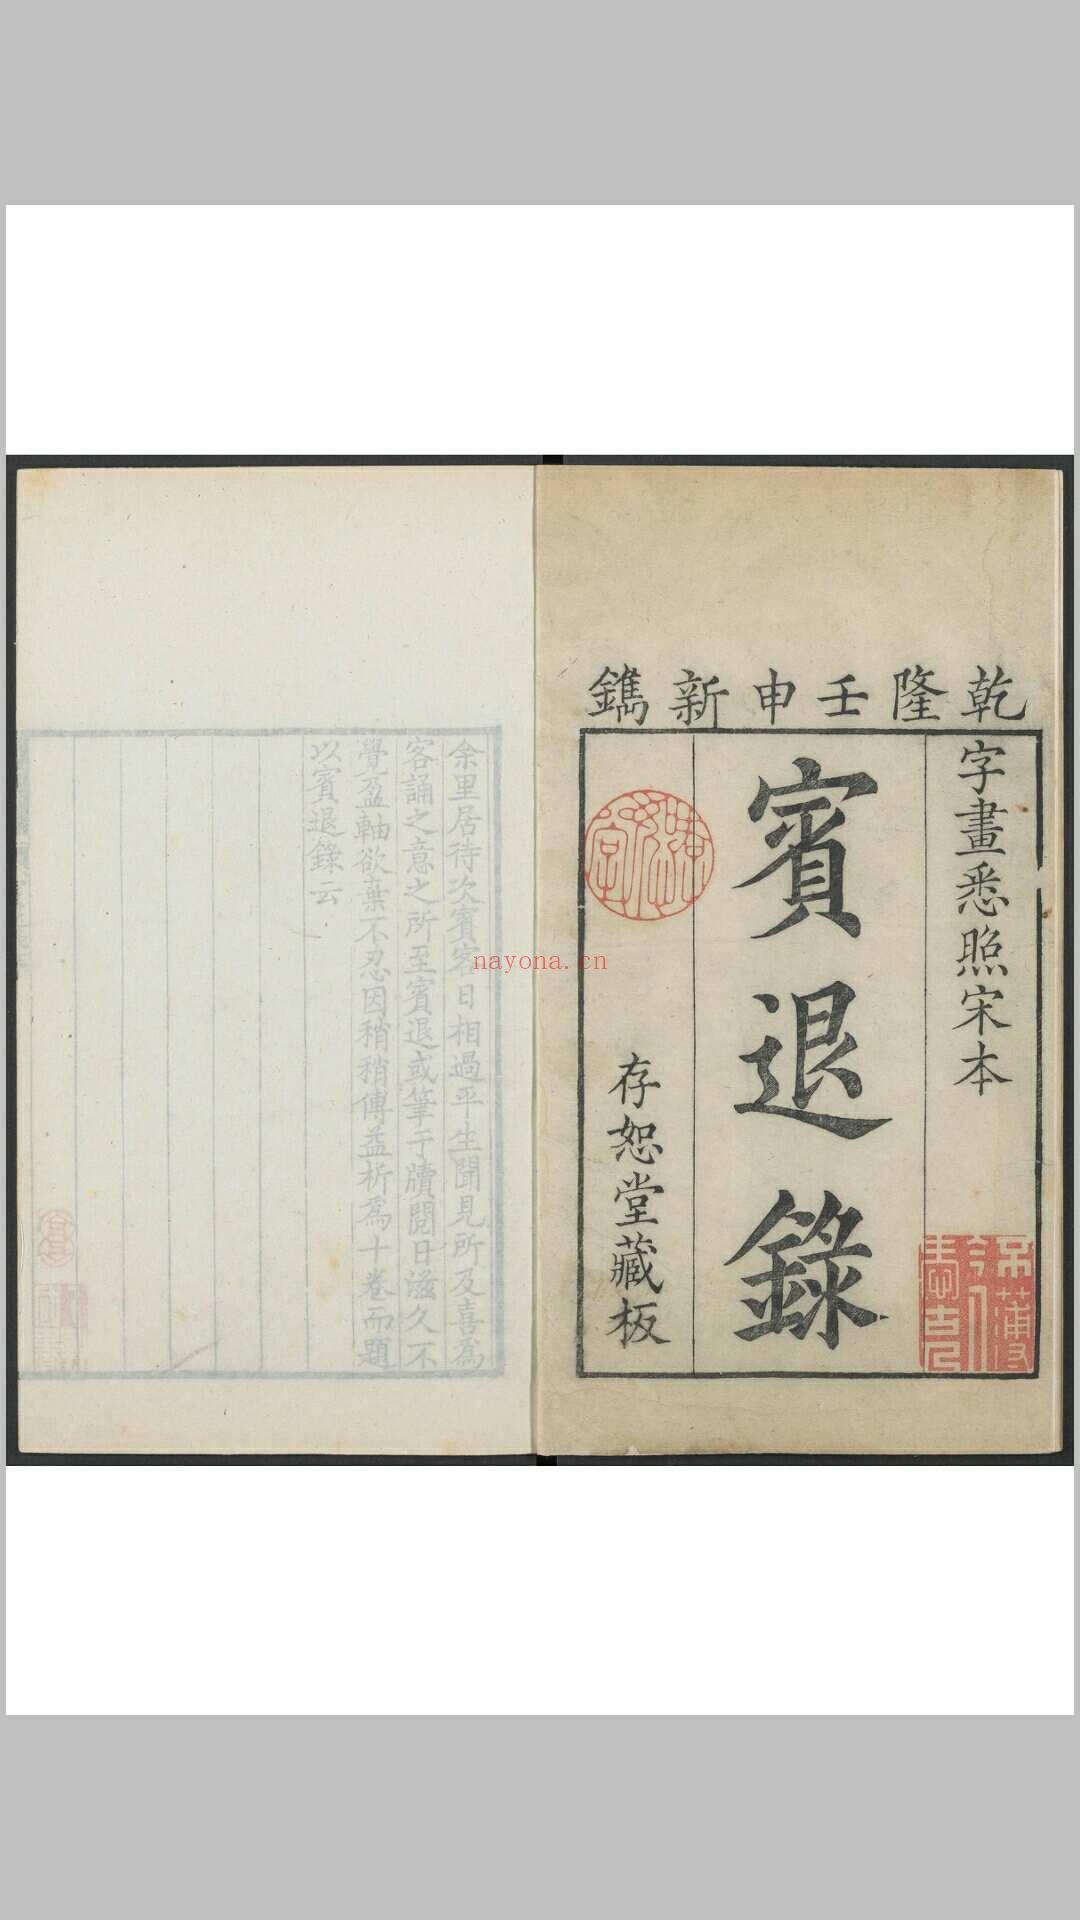 乾隆壬申新鐫
字畫悉照宋本
賓退錄
存恕堂藏板
余里居待次賓客日相過平生聞見所及喜為
客誦之意之所至賓退或筆于牘閱日滋久不
覺盈軸欲棄不忍因稍稍傅益析為十卷而題
以賓退錄云
nayona.cn